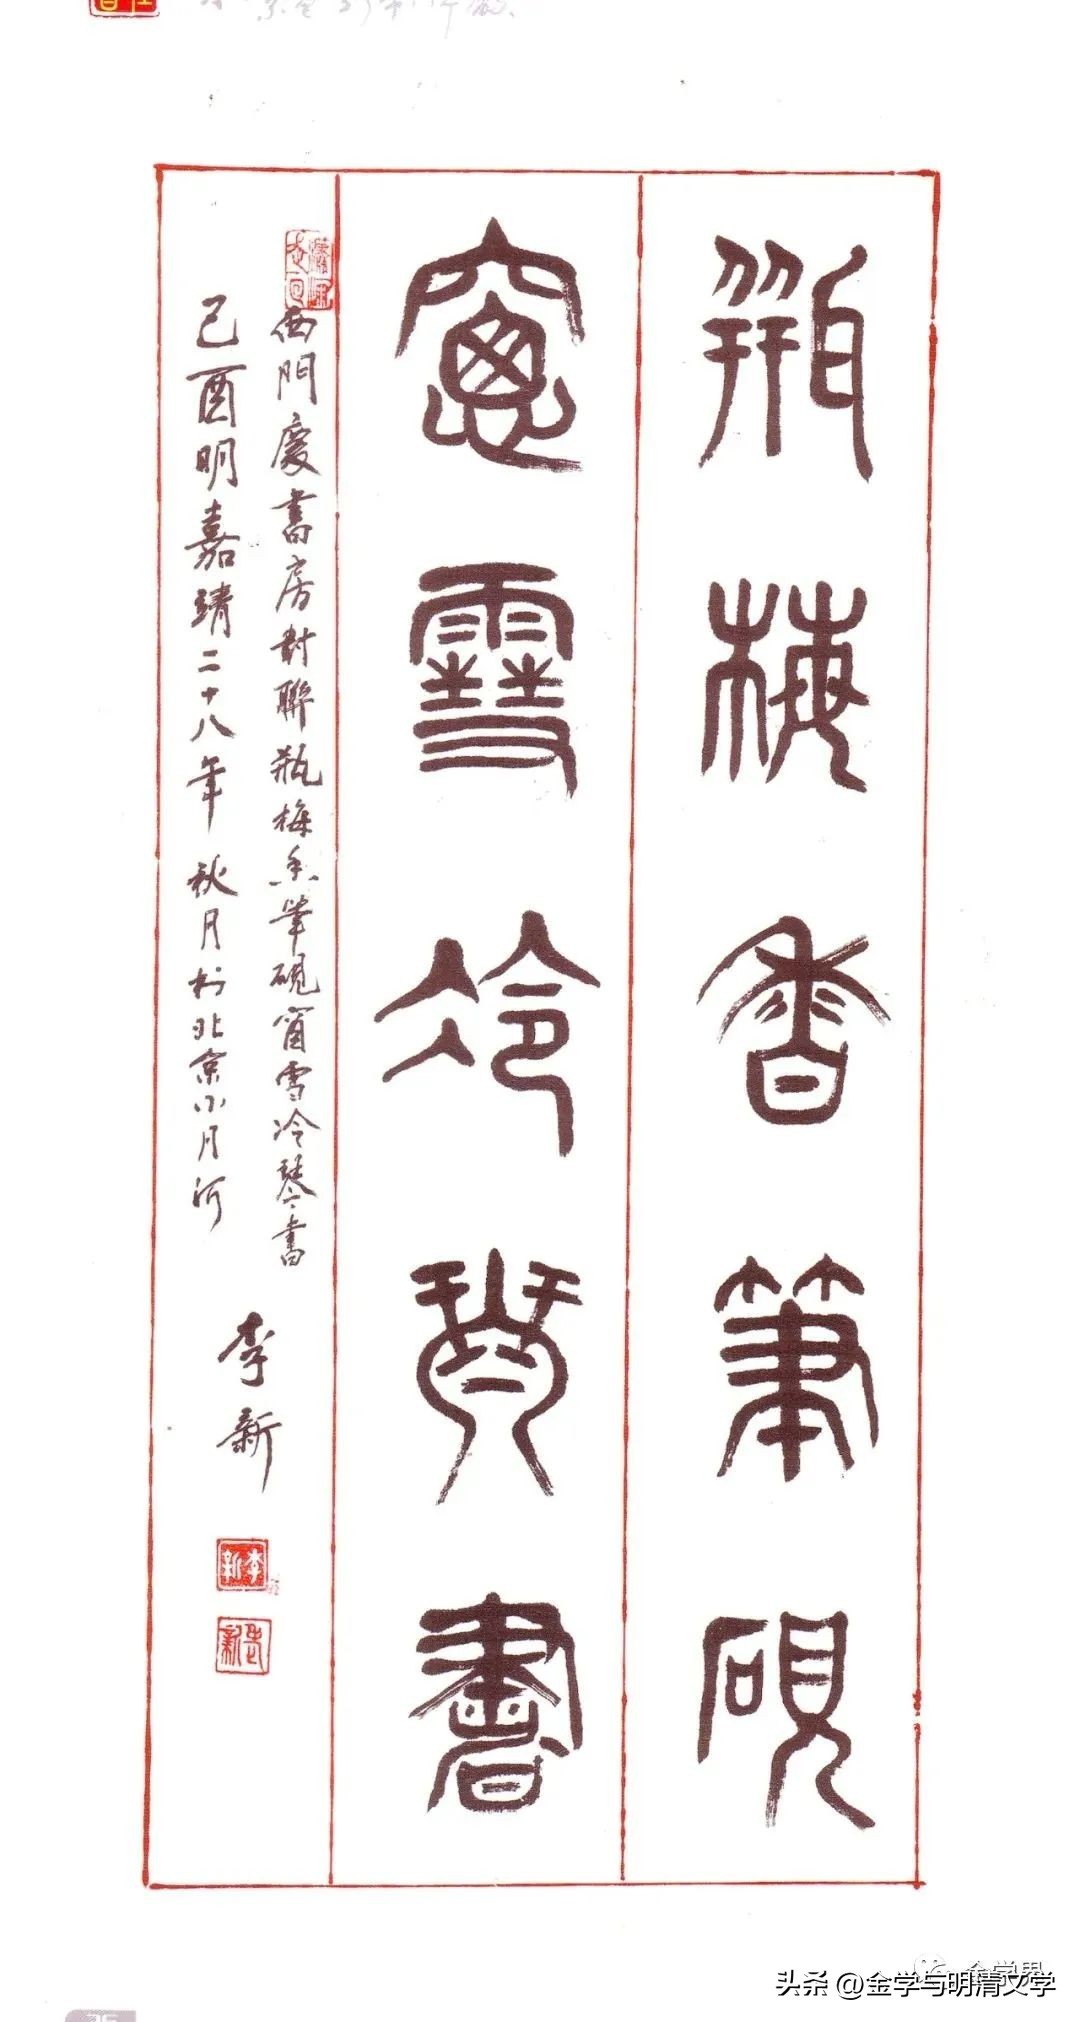 瓶梅香筆硯
窗雪冷琴書
西門慶書房對聯瓶梅香筆硯窗雪冷琴書
己酉明嘉靖二十八年秋月於北京小月河
李新
李新
头条 @金学与明清文学
金学界